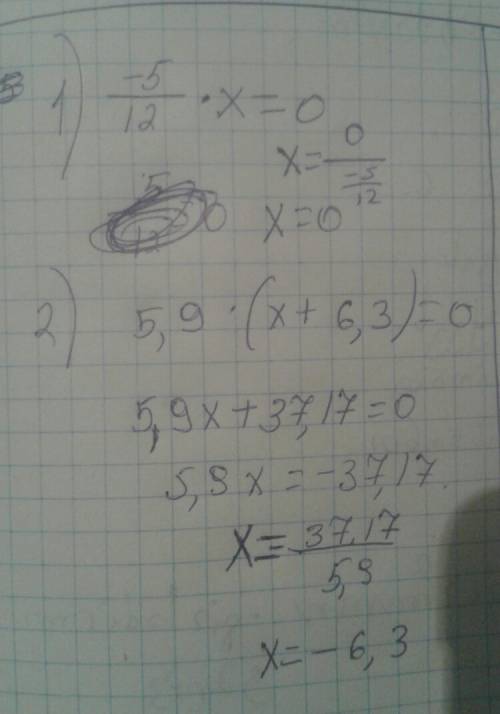 1) -5/12 · x = 0
x = 0/(-5/12)
x = 0
2) 5,9 · (x + 6,3) = 0
5,9x + 37,17 = 0
5,9x = -37,17
x = -37,17/5,9
x = -6,3